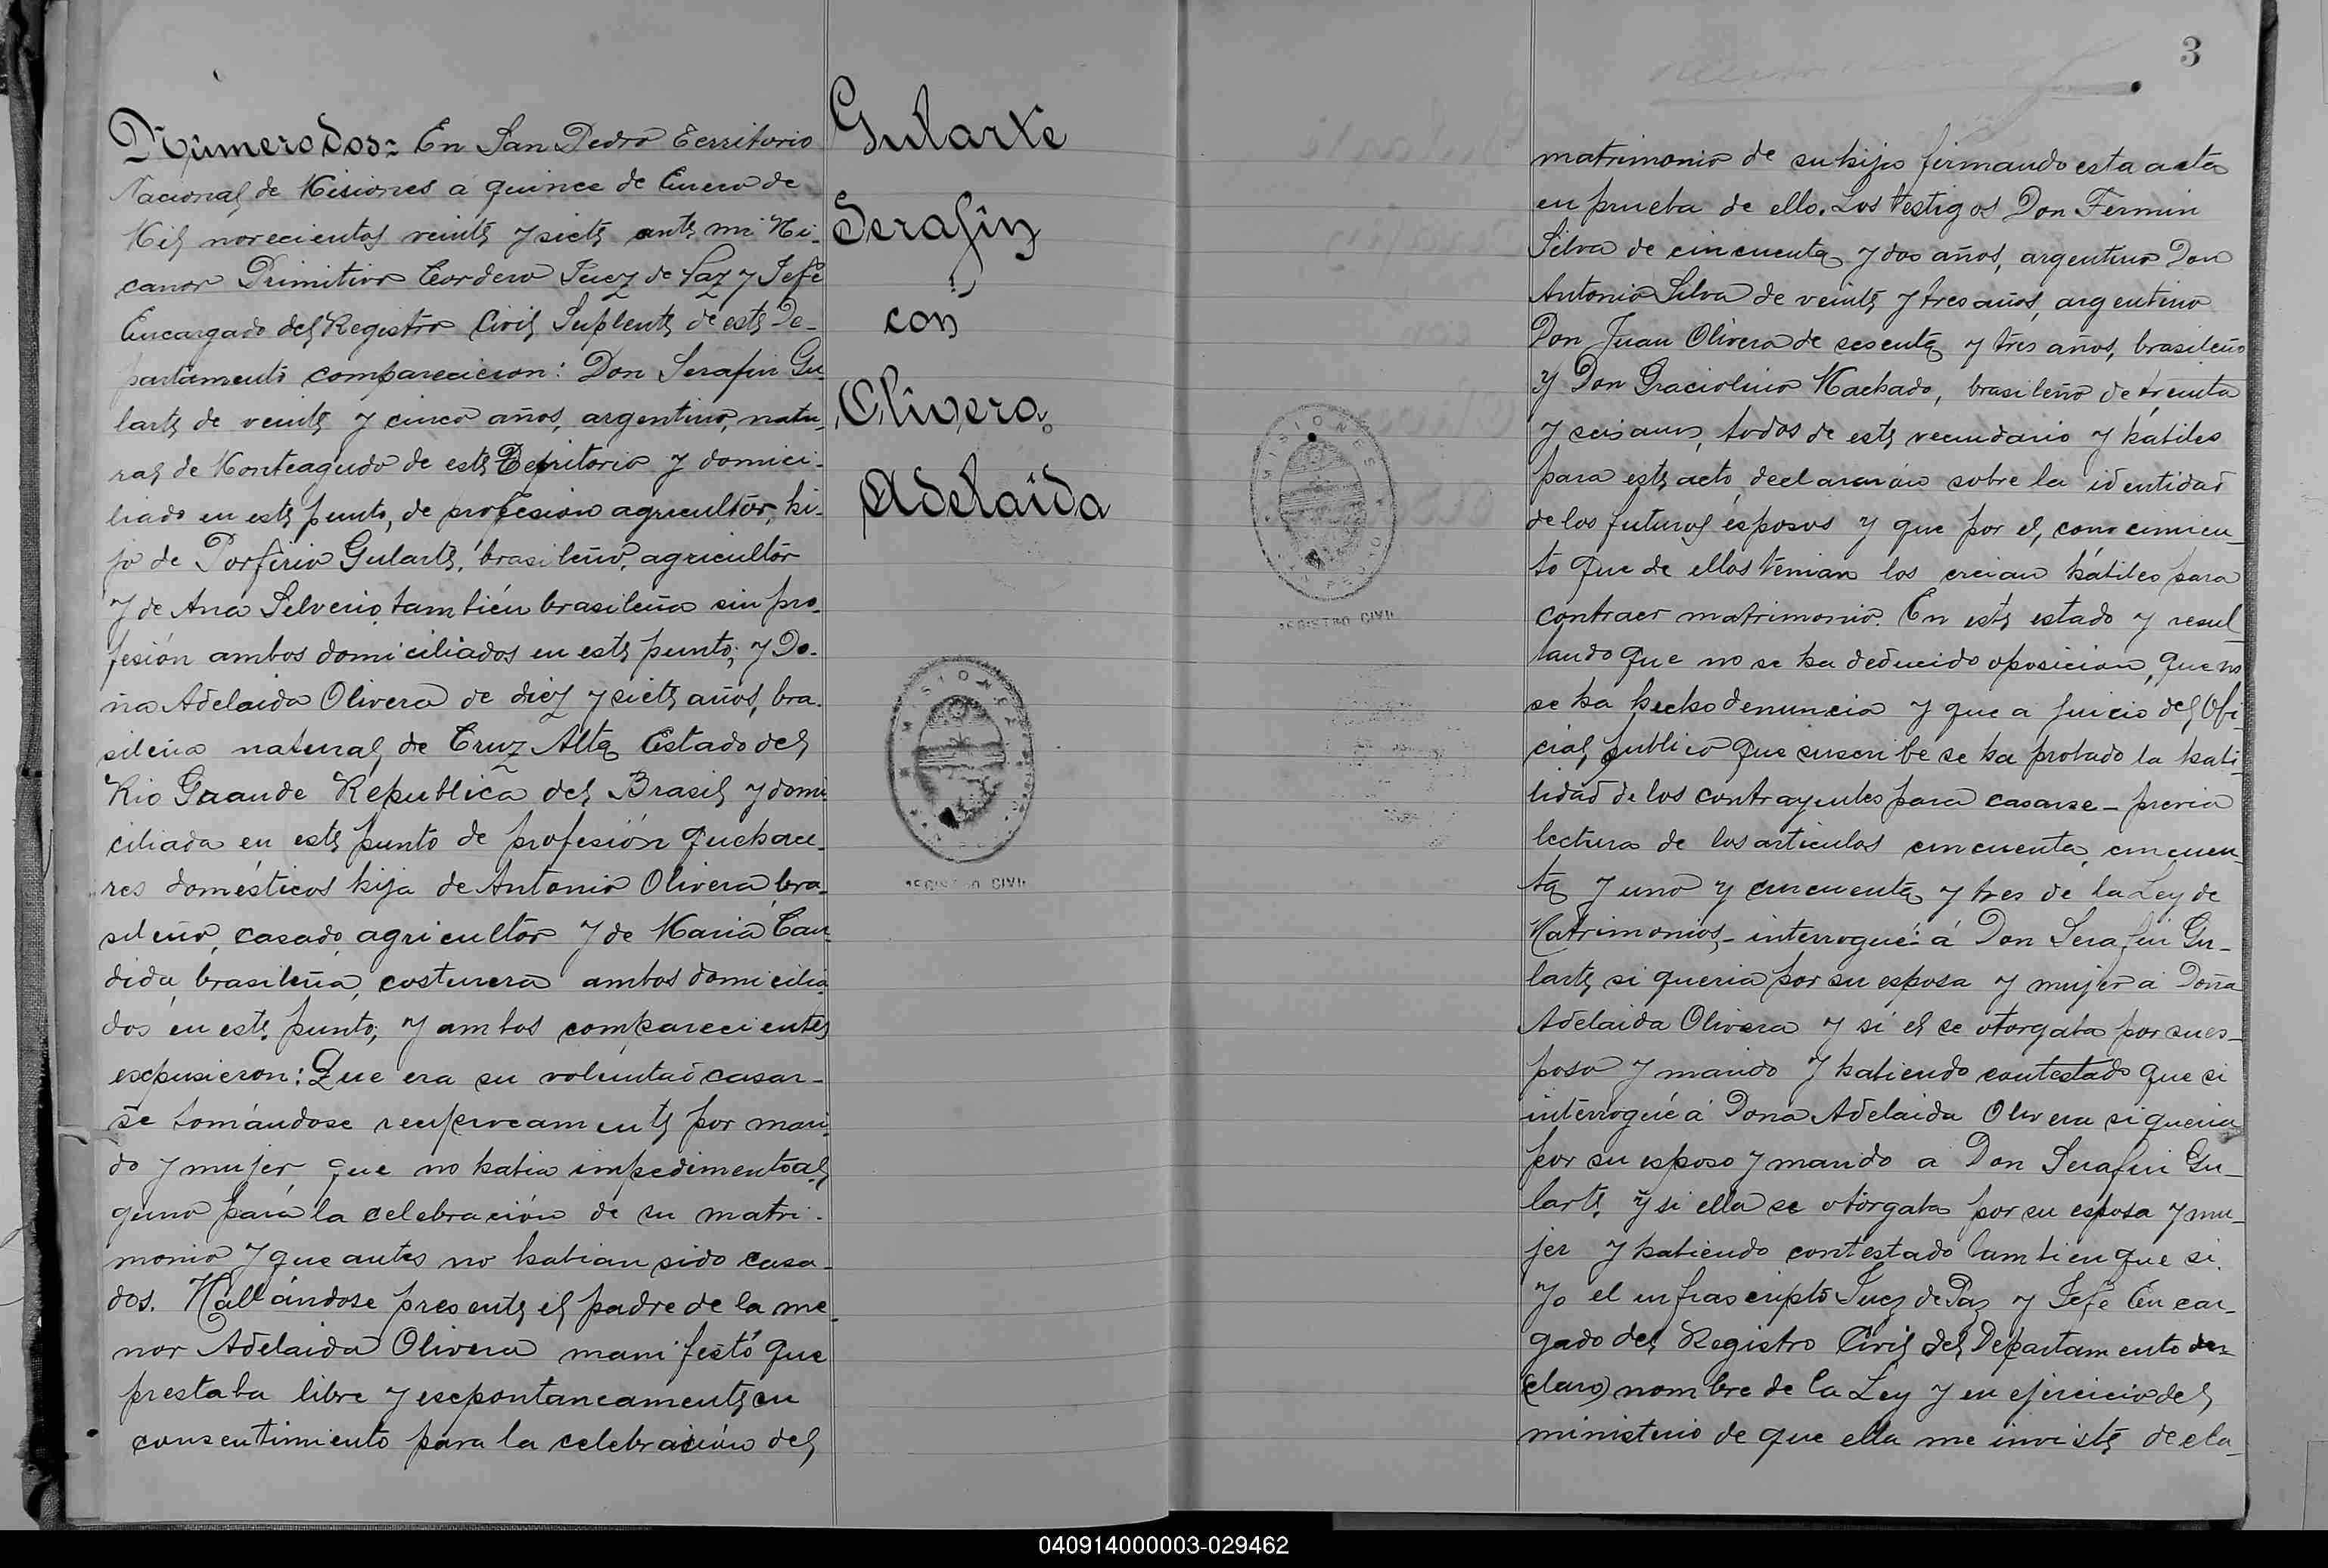 Número dos= En San Pedro Territorio
Nacional de Misiones a quince de Enero de
Mil novecientos veinte y siete ante mi Ni-
canor Primitivo Cordero Juez de Paz y Jefe
Encargado del Registro Civil Suplente de este De-
partamento comparecieron: Don Serafin Gu-
larte de veinte y cinco años, argentino, natu-
ral de Monteagudo de este Territorio y domici-
liado en este punto, de profesión agricultor, hi-
jo de Porfirio Gularte, brasileño, agricultor
y de Ana Silverio, también brasileña sin pro-
fesión ambos domiciliados en este punto; y Do-
ña Adelaida Olivera de diez y siete años, bra-
sileña natural de Cruz Alta Estado del
Rio Grande Republica del Brasil y domi-
ciliada en este punto de profesión quehace-
res domésticos hija de Antonio Olivera, bra-
sileño, casado, agricultor y de Maria Can-
dida, brasileña, costurera ambos domicilia-
dos en este punto; y ambos comparecientes
expusieron: Que era su voluntad casar-
se tomándose reciprocamente por mari-
do y mujer, que no habia impedimento al-
guno para la celebración de su matri-
monio y que antes no habian sido casa-
dos. Hallándose presente el padre de la me-
nor Adelaida Olivera manifestó que
prestaba libre y espontaneamente su
consentimiento para la celebración del
Gularte
Serafin
con
Olivera
Adelaida
MISIONES
SAN PEDRO
REGISTRO CIVIL
3
MISIONES
SAN PEDRO
REGISTRO CIVIL
matrimonio de su hija firmando esta acta
en prueba de ello. Los testigos Don Fermin
Silva de cincuenta y dos años, argentino Don
Antonio Silva de veinte y tres años, argentino
Don Juan Olivera de sesenta y tres años, brasileño
y Don Graciolino Machado, brasileño de treinta
y seis años, todos de este vecindario y habiles
para este acto, declararon sobre la identidad
de los futuros esposos y que por el conocimien-
to que de ellos tenian los creian hábiles para
contraer matrimonio. En este estado y resul-
tando que no se ha deducido oposicion, que no
se ha hecho denuncia y que a juicio del Ofi-
cial publico que suscribe se ha probado la habi-
lidad de los contrayentes para casarse - previa
lectura de los articulos cincuenta, cincuen-
ta y uno y cincuenta y tres de la Ley de
Matrimonios,- interrogué: á Don Serafin Gu-
larte si queria por su esposa y mujer a Doña
Adelaida Olivera y si él se otorgaba por su es-
poso y marido y habiendo contestado que si
interrogué a Doña Adelaida Olivera si queria
por su esposo y marido a Don Serafin Gu-
larte y si ella se otorgaba por su esposa y mu-
jer y habiendo contestado tambien que si.
Yo el infrascripto Juez de Paz y Jefe Encar-
gado del Registro Civil del Departamento de-
(claro) nombre de la Ley y en ejercicio del
ministerio de que ella me inviste decla-
040914000003-029462